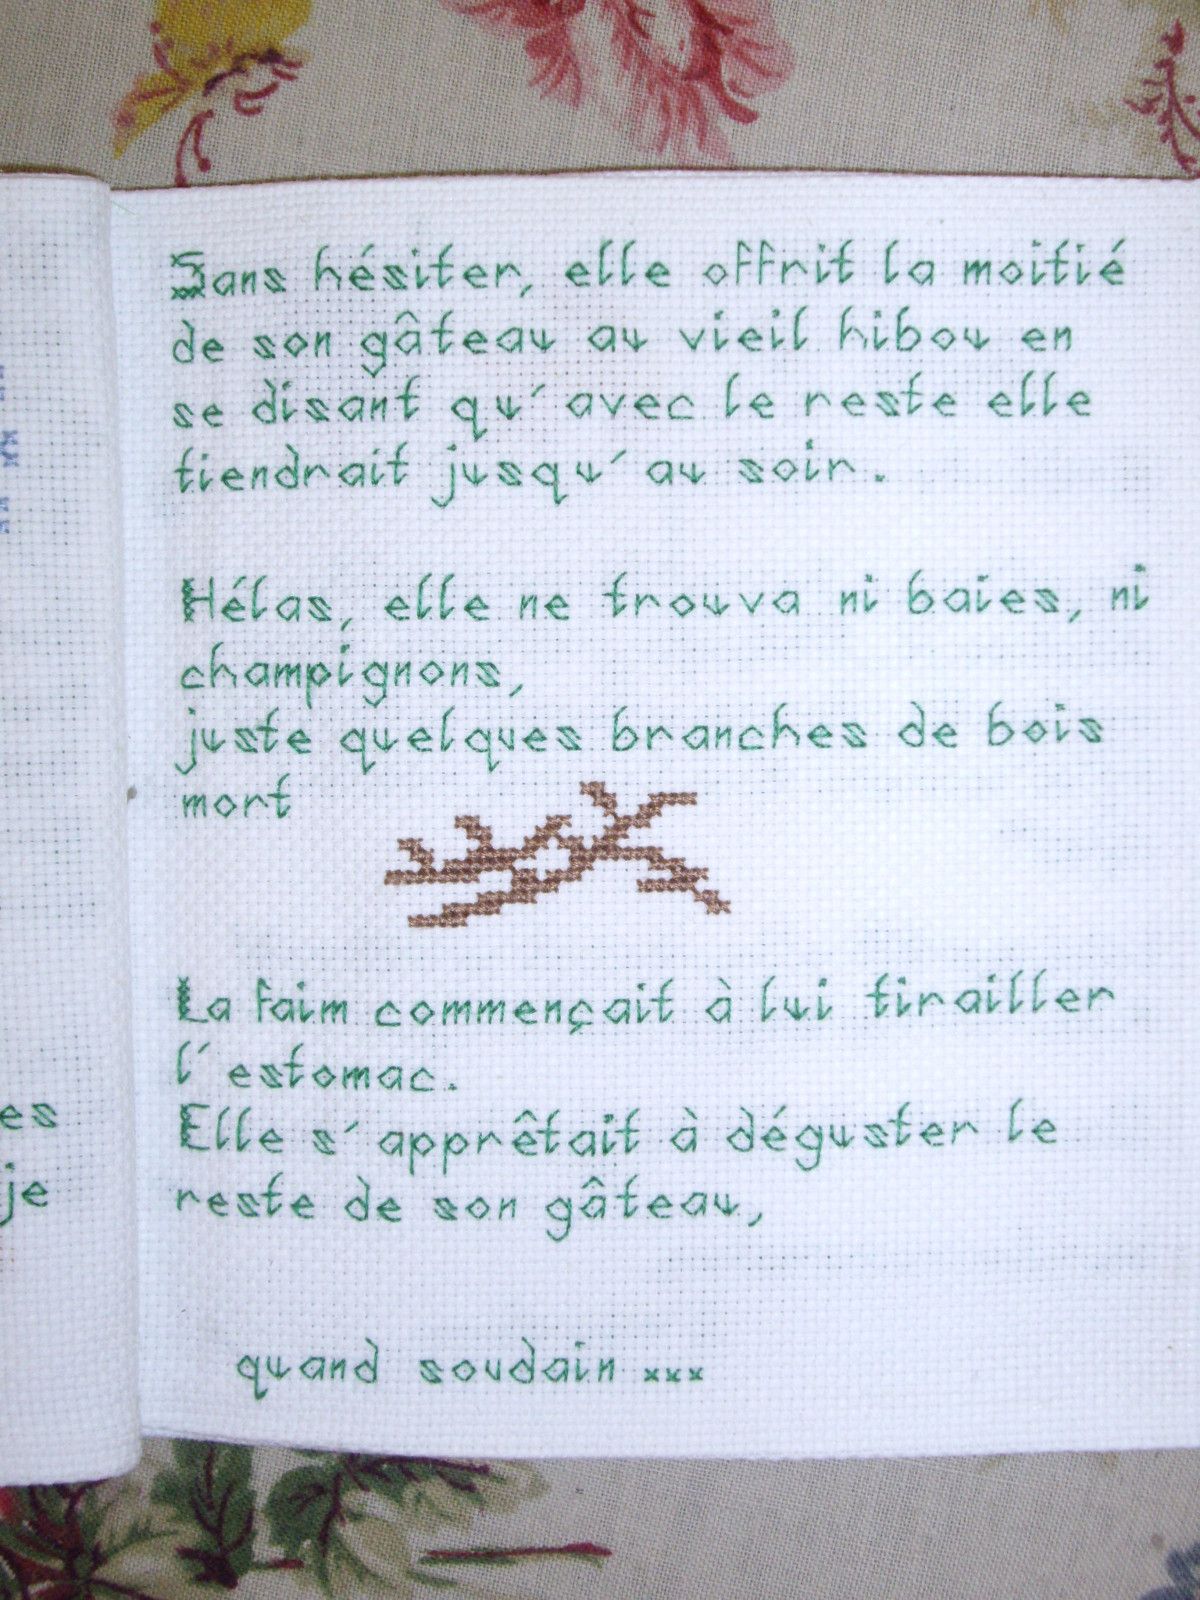 es
je
Sans hésiter, elle offrit la moitié
de son gâteau au vieil hibou en
se disant qu'avec le reste elle
tiendrait jusqu'au soir.
Hélas, elle ne trouva ni baies, ni
champignons,
juste quelques branches de bois
mort
La faim commençait à lui tirailler
l'estomac.
Elle s'apprêtait à déguster le
reste de son gâteau,
quand soudain ...